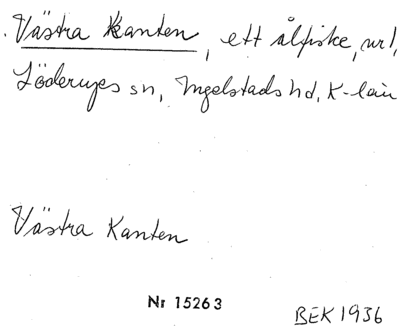 Västra Kanten, ett ålfiske,
Löderups sn, Ingelstads hd, K-län
Västra Kanten
Nr 15263
BEK 1936